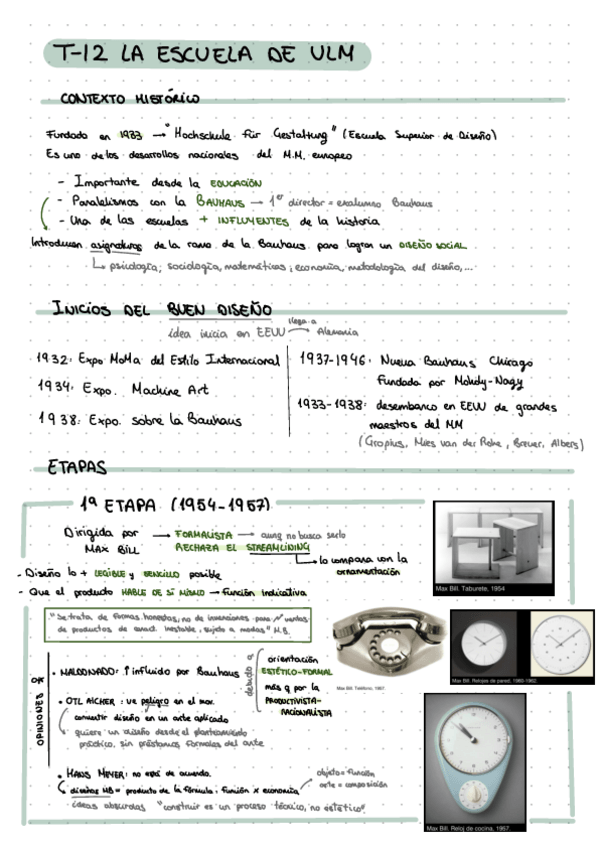 T-12 LA ESCUELA DE ULM
CONTEXTO HISTÓRICO
Fundada en 1933 → "Hochschule für Gestaltung" (Escuela Superior de Diseño)
Es uno de los desarrollos nacionales del M.M. europeo
- Importante desde la EDUCACIÓN
- Paralelismos con la BAUHAUS → 1er director = exalumno Bauhaus
- Una de las escuelas + INFLUYENTES de la historia
Introducen asignaturas de la rama de la Bauhaus para lograr un DISEÑO SOCIAL
psicología, sociología, matemáticas, economía, metodología del diseño,...
INICIOS DEL BUEN DISEÑO
idea inicia en EEUU llega a Alemania
1932: Expo MoMa del Estilo Internacional
1934: Expo. Machine Art
1938: Expo. sobre la Bauhaus
1937-1946: Nueva Bauhaus Chicago
Fundada por Moholy-Nagy
1933-1938: desembarco en EEUU de grandes
maestros del MM
(Gropius, Mies van der Rohe, Breuer, Albers)
ETAPAS
1ª ETAPA (1954-1957)
Dirigida por → FORMALISTA → aunq no busca serlo
MAX BILL RECHAZA EL STREAMLINING
lo compara con la
ornamentación
- Diseño lo + LEGIBLE y SENCILLO posible
- Que el producto HABLE DE SÍ MISMO → función indicativa
"Se trata de formas honestas, no de invenciones para ventas
de productos de caract. inestable, sujeto a modas" M.B.
OPINIONES DE
• MALDONADO: ↑ influido por Bauhaus
debido a
orientación
ESTÉTICO-FORMAL
más q por la
PRODUCTIVISTA-
RACIONALISTA
• OTL AICHER: ve peligro en el mov.
convertir diseño en un arte aplicado
quiere un diseño desde el planteamiento
práctico, sin préstamos formales del arte
• HANS MEYER: no está de acuerdo.
diseños MB = producto de la fórmula: función x economía
objeto = función
arte = composición
ideas absurdas "construir es un proceso técnico, no estético"
Max Bill. Taburete, 1954
Max Bill. Teléfono, 1957.
Max Bill. Relojes de pared, 1960-1962.
Max Bill. Reloj de cocina, 1957.